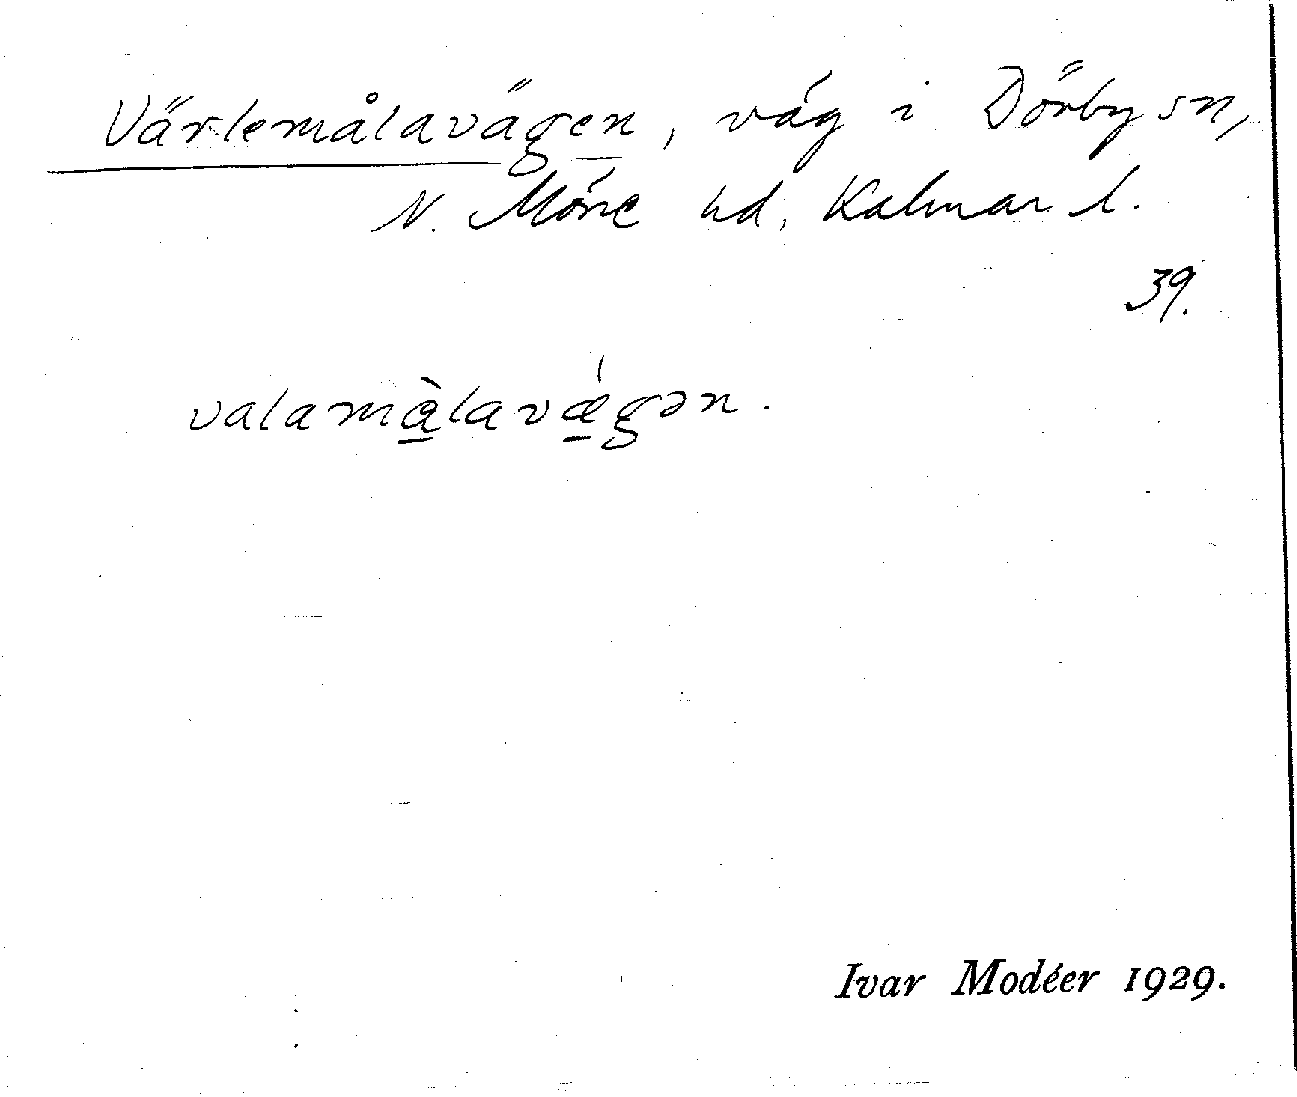 Värlemålavägen, väg i Dörby sn,
N. Möre hd, Kalmar l.
39.
valamàlavǽgən.
Ivar Modéer 1929.